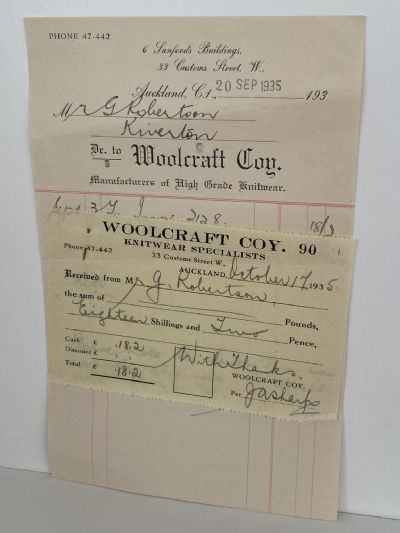 PHONE 47-442
6 Sanfords Buildings,
33 Customs Street, W.,
Auckland, C.1., 20 SEP 1935 193
Mr G Robertson
Riverton
Dr. to Woolcraft Coy.
Manufacturers of High Grade Knitwear.
Sept 3 2128 18/2
WOOLCRAFT COY. 90
KNITWEAR SPECIALISTS
Phone 47-442 33 Customs Street W.,
AUCKLAND, October 17 1935.
Received from Mr G. Robertson,
the sum of Pounds,
Eighteen Shillings and Two Pence,
Cash £ : 18.2 With Thanks.
Discount £ : :
WOOLCRAFT COY.
Total £ : 18.2 Per